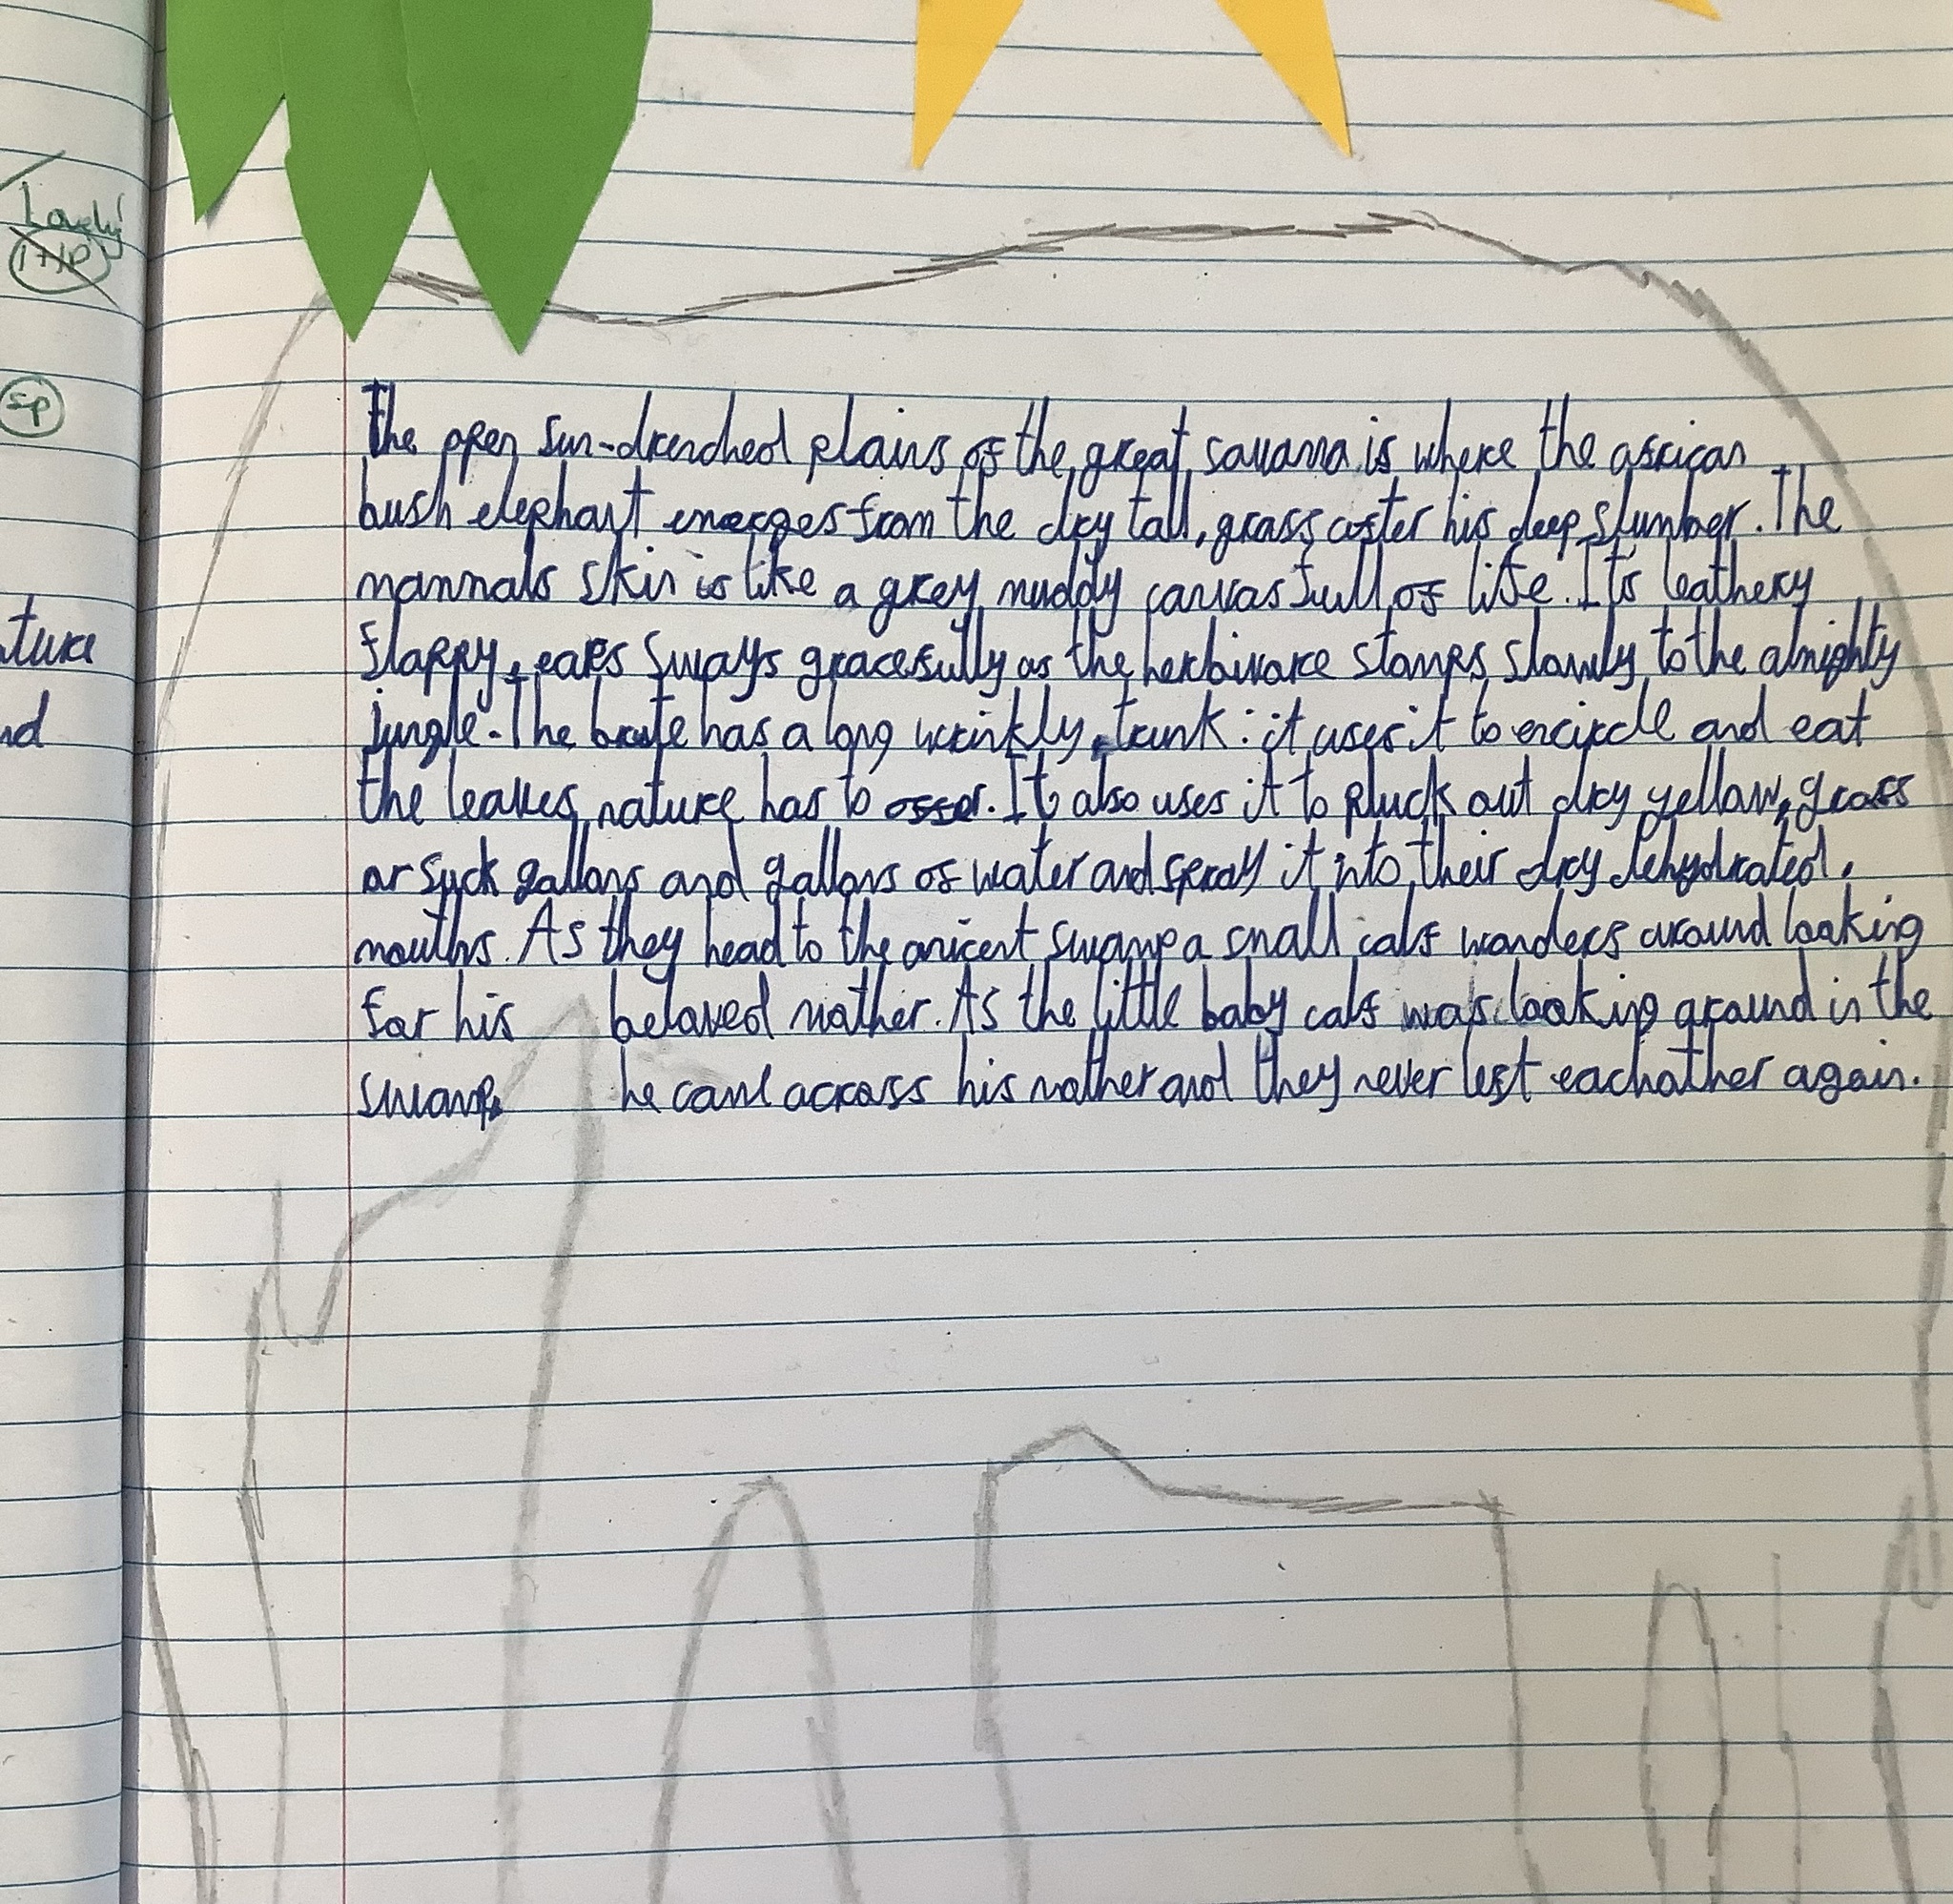 Lovely!
1 HP
sp
ture
nd
The open sun-drenched plains of the great savanna is where the african
bush elephant emerges from the dry tall, grass after his deep slumber. The
mammals skin is like a grey muddy canvas full of life. It's leathery
flappy, ears sways gracefully as the herbivore stomps slowly to the almighty
jungle. The brute has a long wrinkly, trunk: it uses it to encircle and eat
the leaves nature has to offer. It also uses it to pluck out dry yellow, grass
or suck gallons and gallons of water and spray it into their dry dehydrated,
mouths. As they head to the anicent swamp a small calf wanders around looking
for his beloved mother. As the little baby calf was looking around in the
swamp, he came across his mother and they never left eachother again.